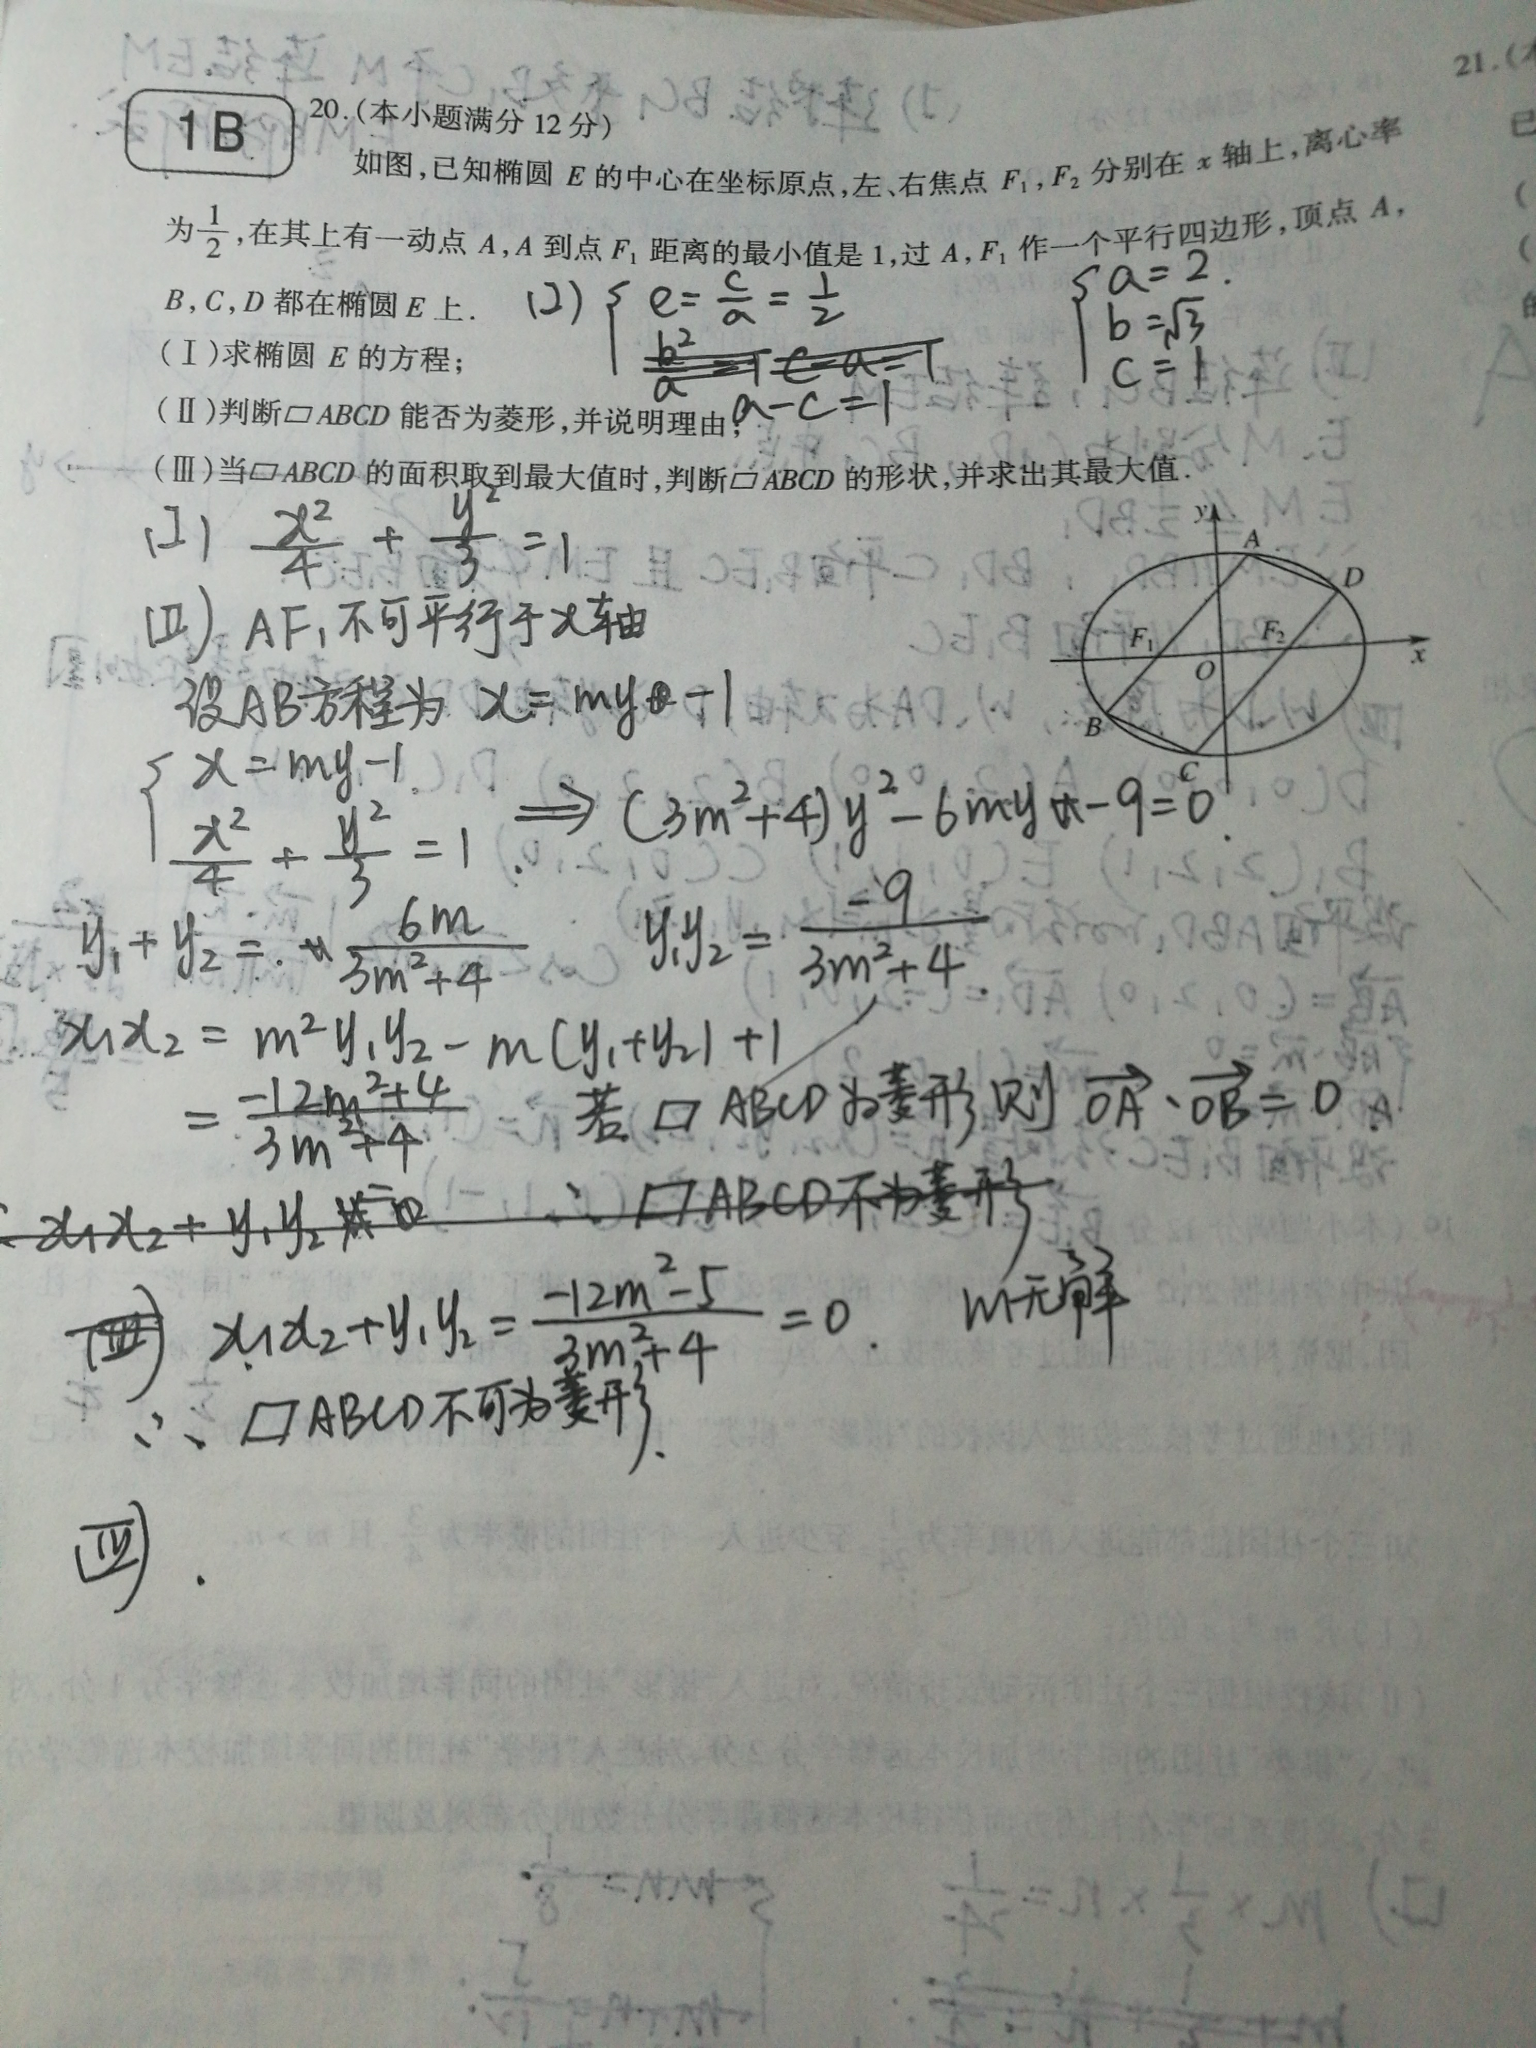 1B
20.(本小题满分 12 分)
如图,已知椭圆 E 的中心在坐标原点,左、右焦点 F₁,F₂ 分别在 x 轴上,离心率
为 1/2,在其上有一动点 A,A 到点 F₁ 距离的最小值是 1,过 A,F₁ 作一个平行四边形,顶点 A,
B,C,D 都在椭圆 E 上.
(Ⅰ)求椭圆 E 的方程;
(Ⅱ)判断▱ABCD 能否为菱形,并说明理由;
(Ⅲ)当▱ABCD 的面积取到最大值时,判断▱ABCD 的形状,并求出其最大值.
{ e = c/a = 1/2
a-c=1
{ a=2.
b=√3
c=1
y
A
D
F₁
F₂
O
x
B
C
(Ⅰ) x²/4 + y²/3 = 1
(Ⅱ) AF₁不可平行于x轴
设AB方程为 x = my-1
{ x = my-1
x²/4 + y²/3 = 1 ⇒ (3m²+4)y² - 6my - 9 = 0.
y₁+y₂ = 6m/(3m²+4) y₁y₂ = -9/(3m²+4).
x₁x₂ = m²y₁y₂ - m(y₁+y₂) + 1
= (-12m²+4)/(3m²+4) 若▱ABCD为菱形 则 OA·OB = 0
x₁x₂ + y₁y₂ ∴▱ABCD不为菱形
(Ⅲ) x₁x₂+y₁y₂ = (-12m²-5)/(3m²+4) = 0. m无解
∴▱ABCD不可为菱形.
(Ⅲ).
21.(本
已
(
(
的